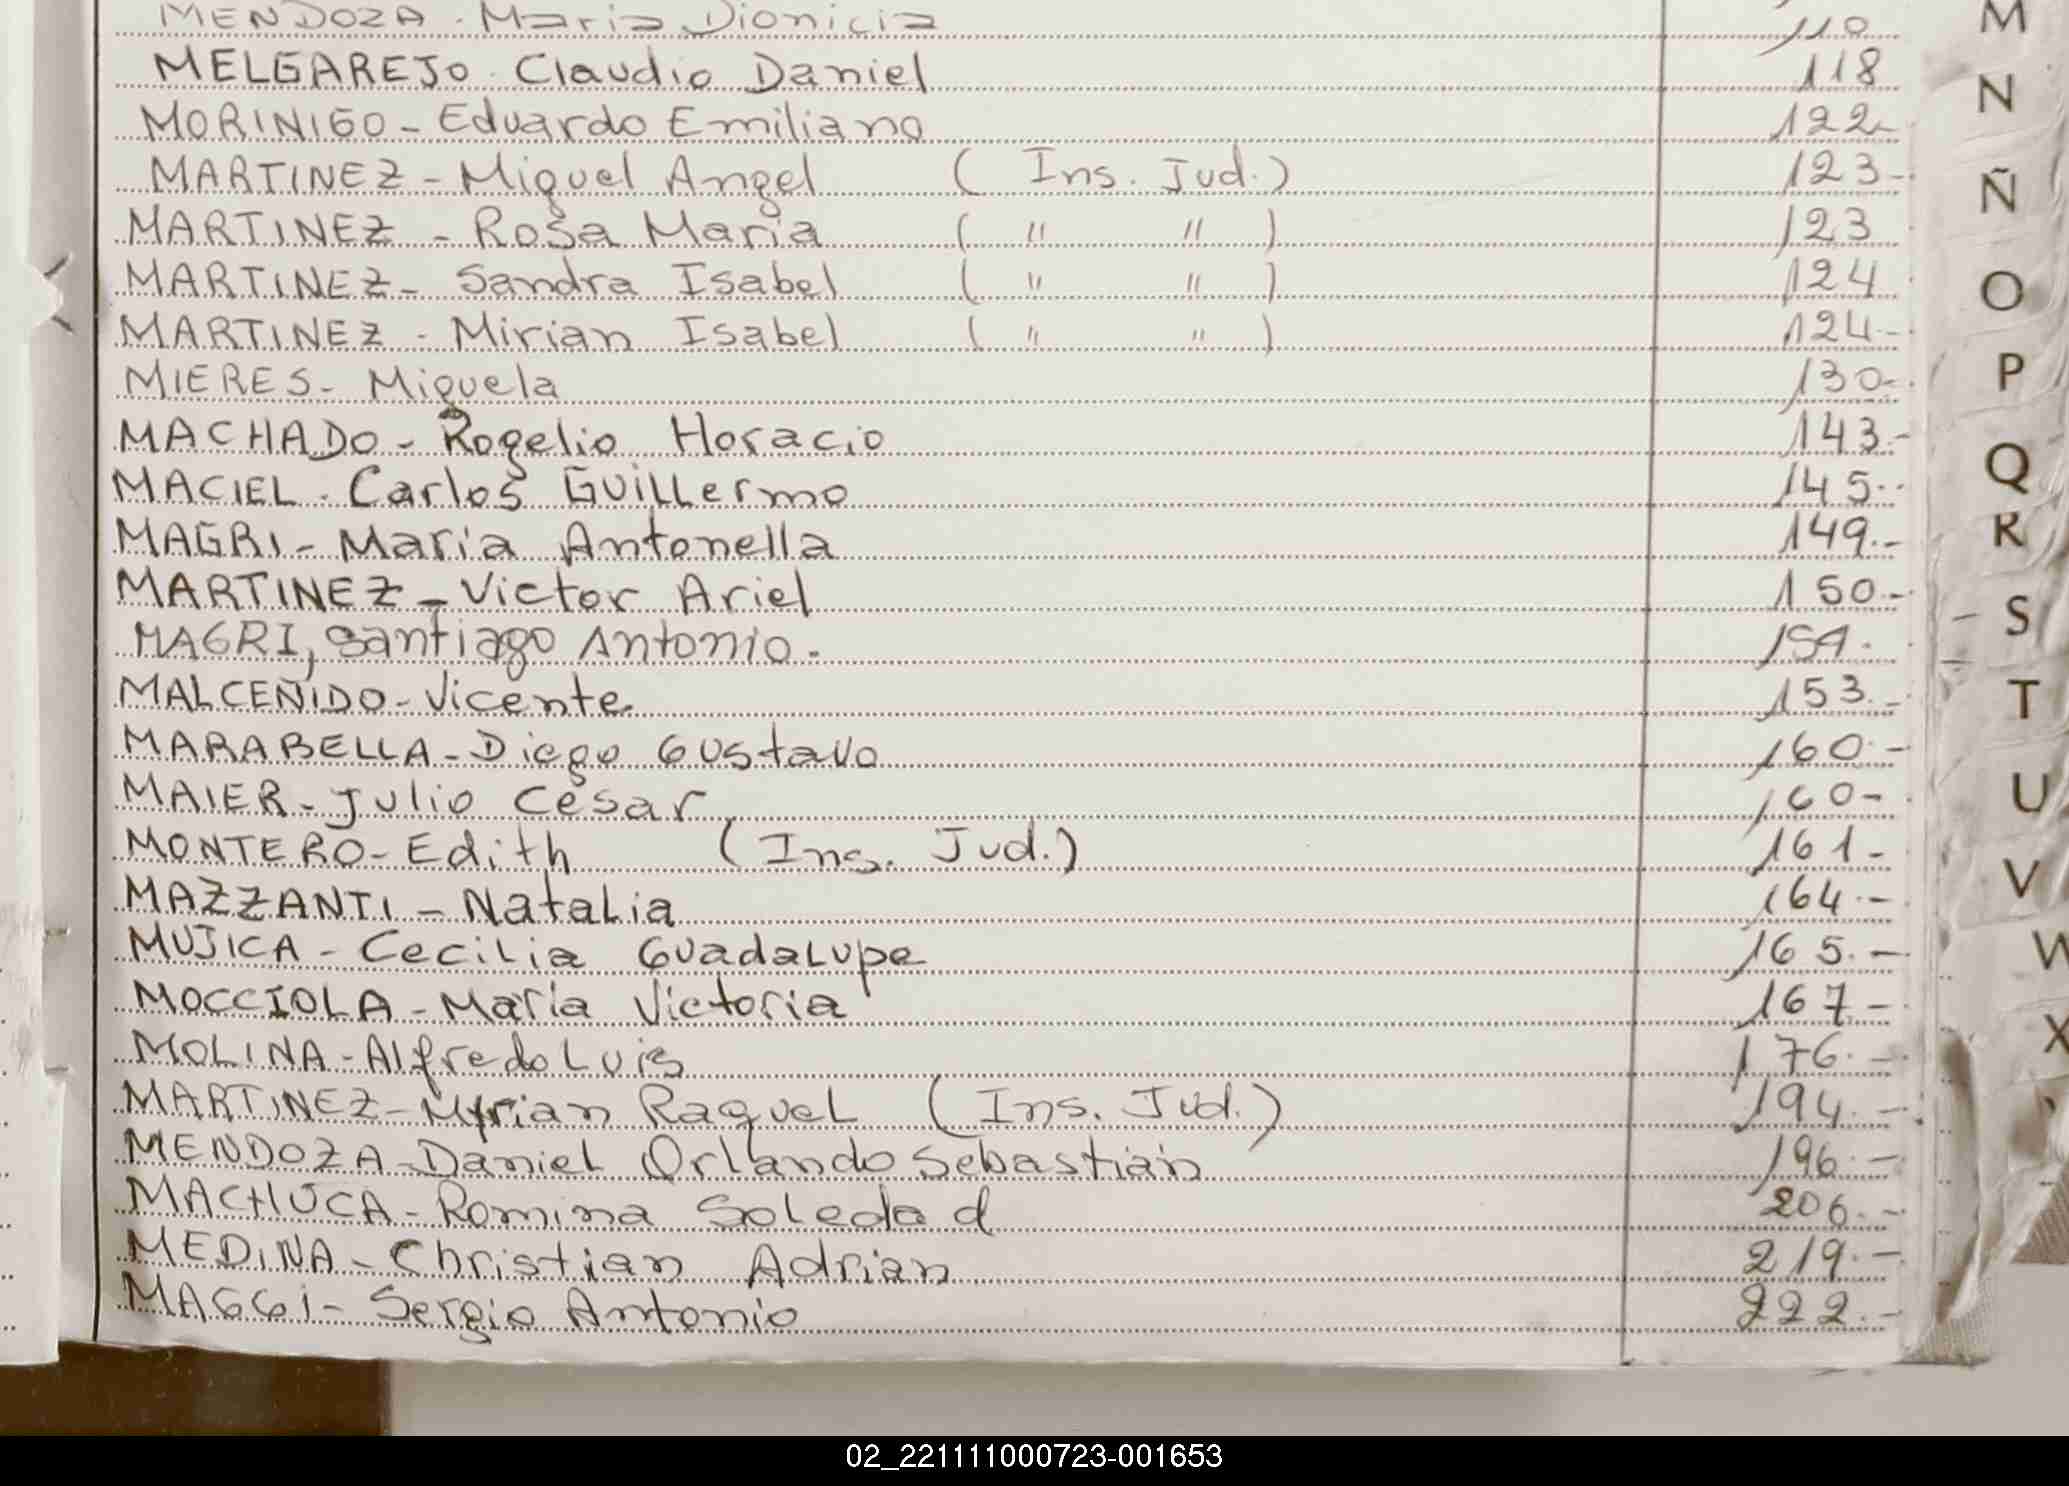 MENDOZA - Maria Dionicia 110
MELGAREJO - Claudio Daniel 118
MORINIGO - Eduardo Emiliano 122-
MARTINEZ - Miguel Angel ( Ins. Jud.) 123-
MARTINEZ - Rosa Maria ( " " ) 123
MARTINEZ - Sandra Isabel ( " " ) 124
MARTINEZ - Mirian Isabel ( " " ) 124.-
MIERES - Miguela 130-
MACHADO - Rogelio Horacio 143.-
MACIEL - Carlos Guillermo 145.-
MAGRI - Maria Antonella 149.-
MARTINEZ - Victor Ariel 150.-
MAGRI, Santiago Antonio.
MALCEÑIDO - Vicente 153.-
MARABELLA - Diego Gustavo 160.-
MAIER - Julio César 160-
MONTERO - Edith (Ins. Jud.) 161-
MAZZANTI - Natalia 164.-
MUJICA - Cecilia Guadalupe 165.-
MOCCIOLA - María Victoria 167-
MOLINA - Alfredo Luis 176.-
MARTINEZ - Myrian Raquel (Ins. Jud.) 194.-
MENDOZA - Daniel Orlando Sebastián 196.-
MACHUCA - Romina Soledad 206.-
MEDINA - Christian Adrian 219.-
MAGGI - Sergio Antonio 222.-
M
N
Ñ
O
P
Q
R
S
T
U
V
W
X
02_221111000723-001653